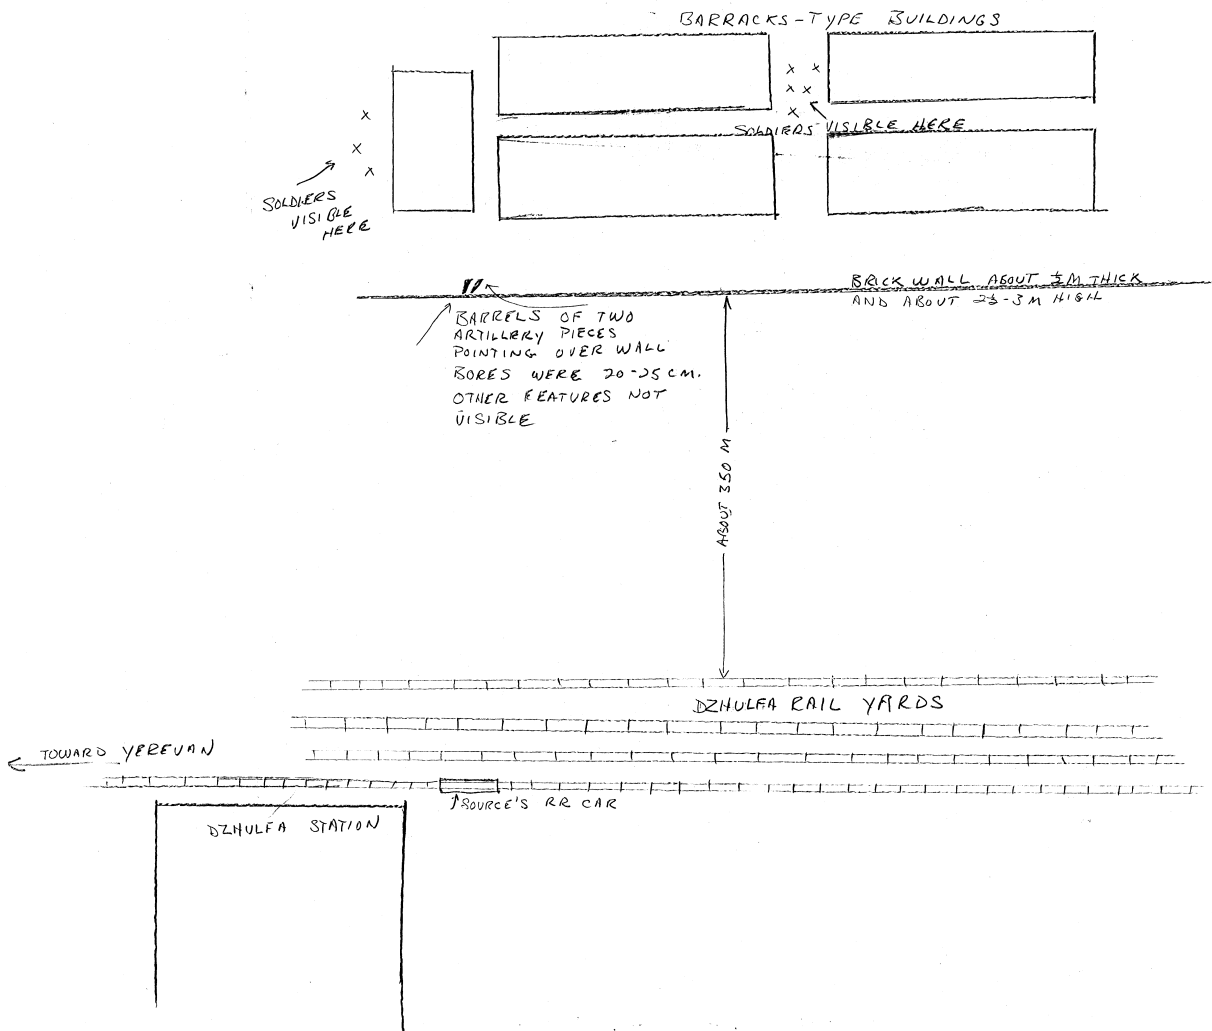 BARRACKS-TYPE BUILDINGS
SOLDIERS VISIBLE HERE
SOLDIERS
VISIBLE
HERE
BRICK WALL ABOUT ½ M THICK
AND ABOUT 2½-3 M HIGH
BARRELS OF TWO
ARTILLERY PIECES
POINTING OVER WALL
BORES WERE 20-25 CM.
OTHER FEATURES NOT
VISIBLE
ABOUT 350 M
DZHULFA RAIL YARDS
TOWARD YEREVAN
SOURCE'S RR CAR
DZHULFA STATION